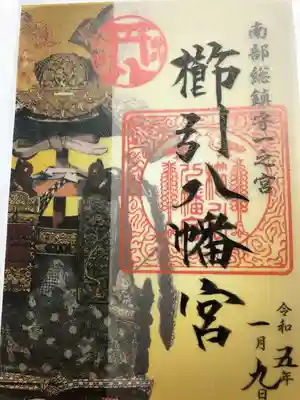 南部総鎮守一之宮
櫛引八幡宮
令和五年
一月九日